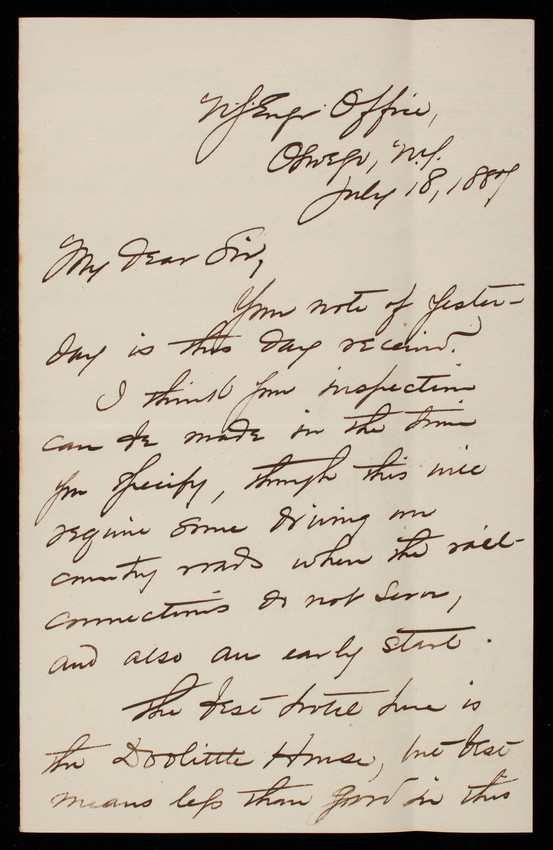 US Engr Office,
Oswego, N.Y.
July 18, 1887
My Dear Sir,
Your note of yester-
day is this day received.
I think your inspection
can be made in the time
you specify, though this will
require some driving on
country roads when the rail-
connections do not serve,
and also an early start.
The best hotel here is
the Doolittle House, but best
means less than good in this